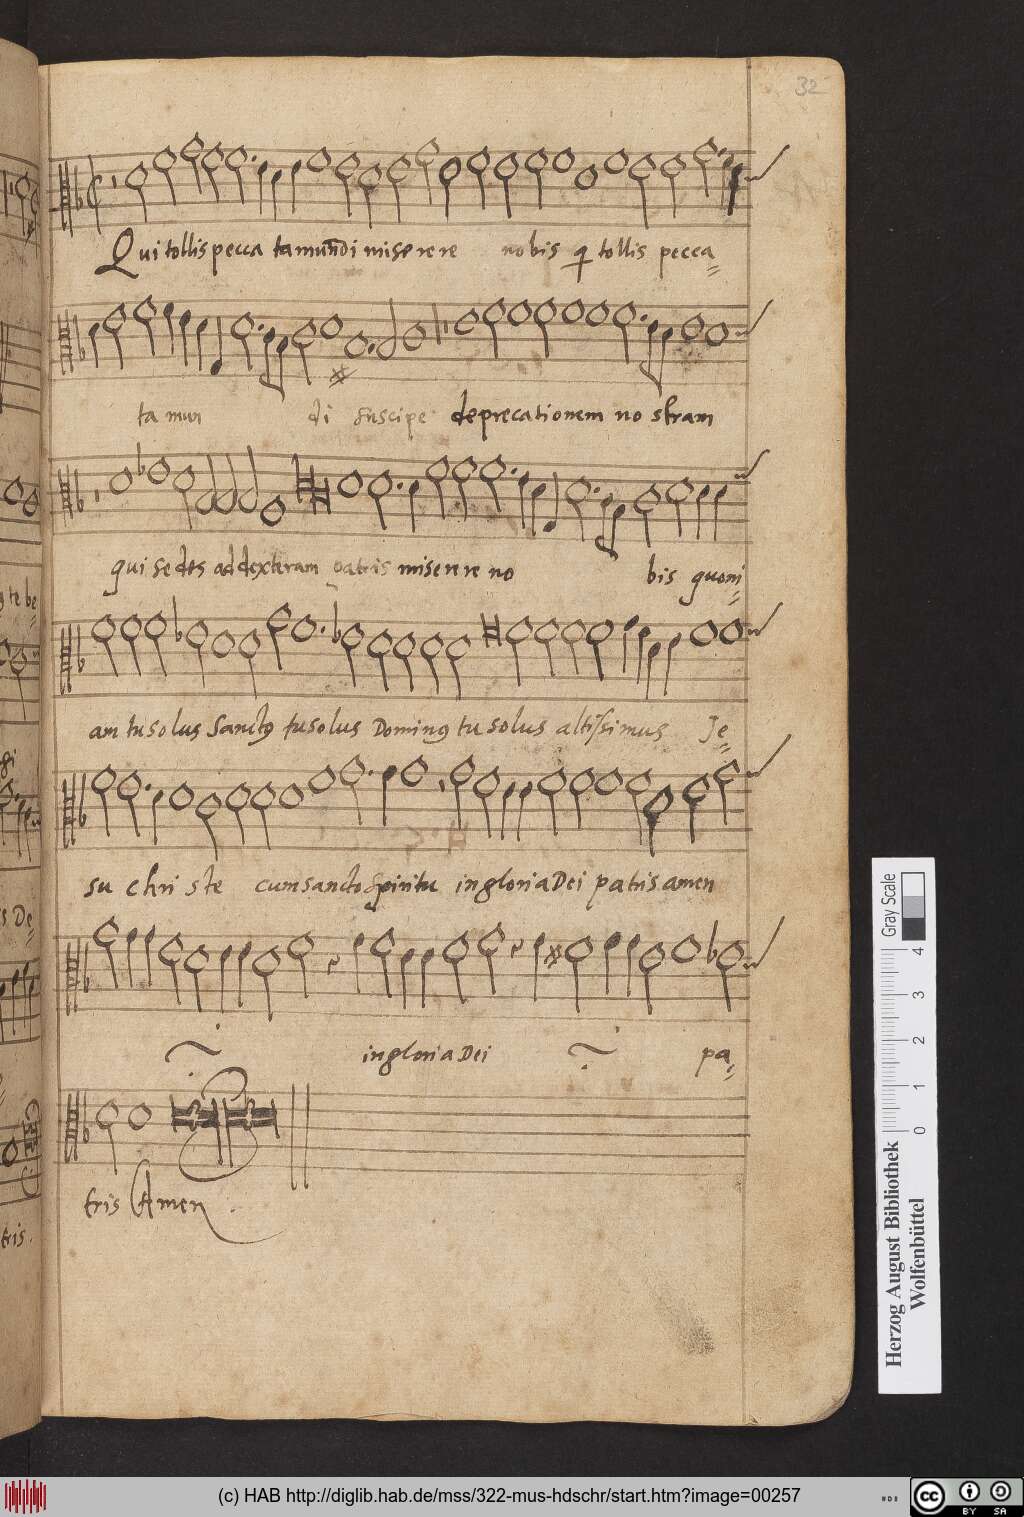 32
Qui tollis pecca ta mundi miserere nobis qi tollis pecca
ta mun di suscipe deprecationem no stram
qui sedes ad dexteram patris miserere no bis quoni
am tu solus Sanctus tu solus Dominus tu solus altissimus Je
su christe cum sancto spiritu in gloria Dei patris amen
in gloria Dei pa
tris Amen.
Herzog August Bibliothek
Wolfenbüttel
0 1 2 3 4
Gray Scale
(c) HAB http://diglib.hab.de/mss/322-mus-hdschr/start.htm?image=00257
cc BY SA